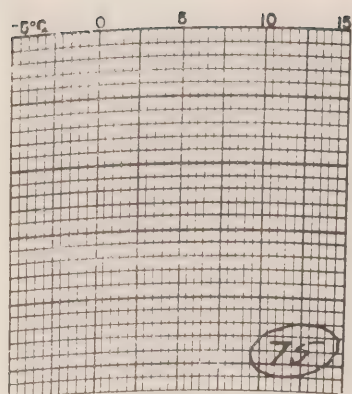 -5°C 0 5 10 15
75